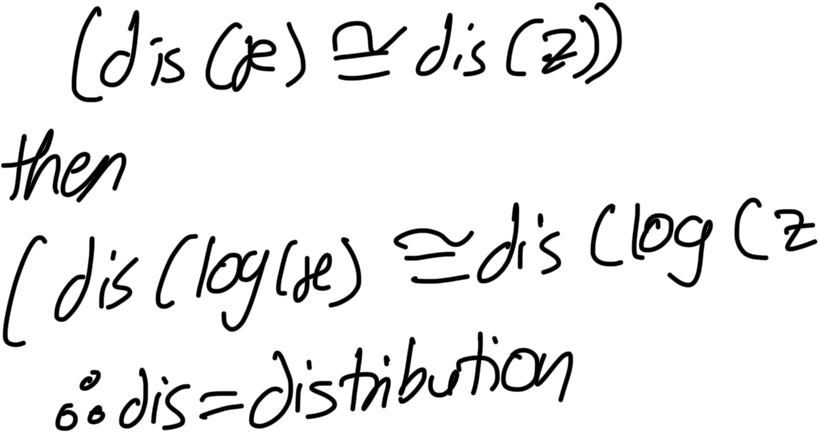 (dis(x) ≅ dis(z))
then
(dis(log(x) ≅ dis(log(z
∴ dis = distribution